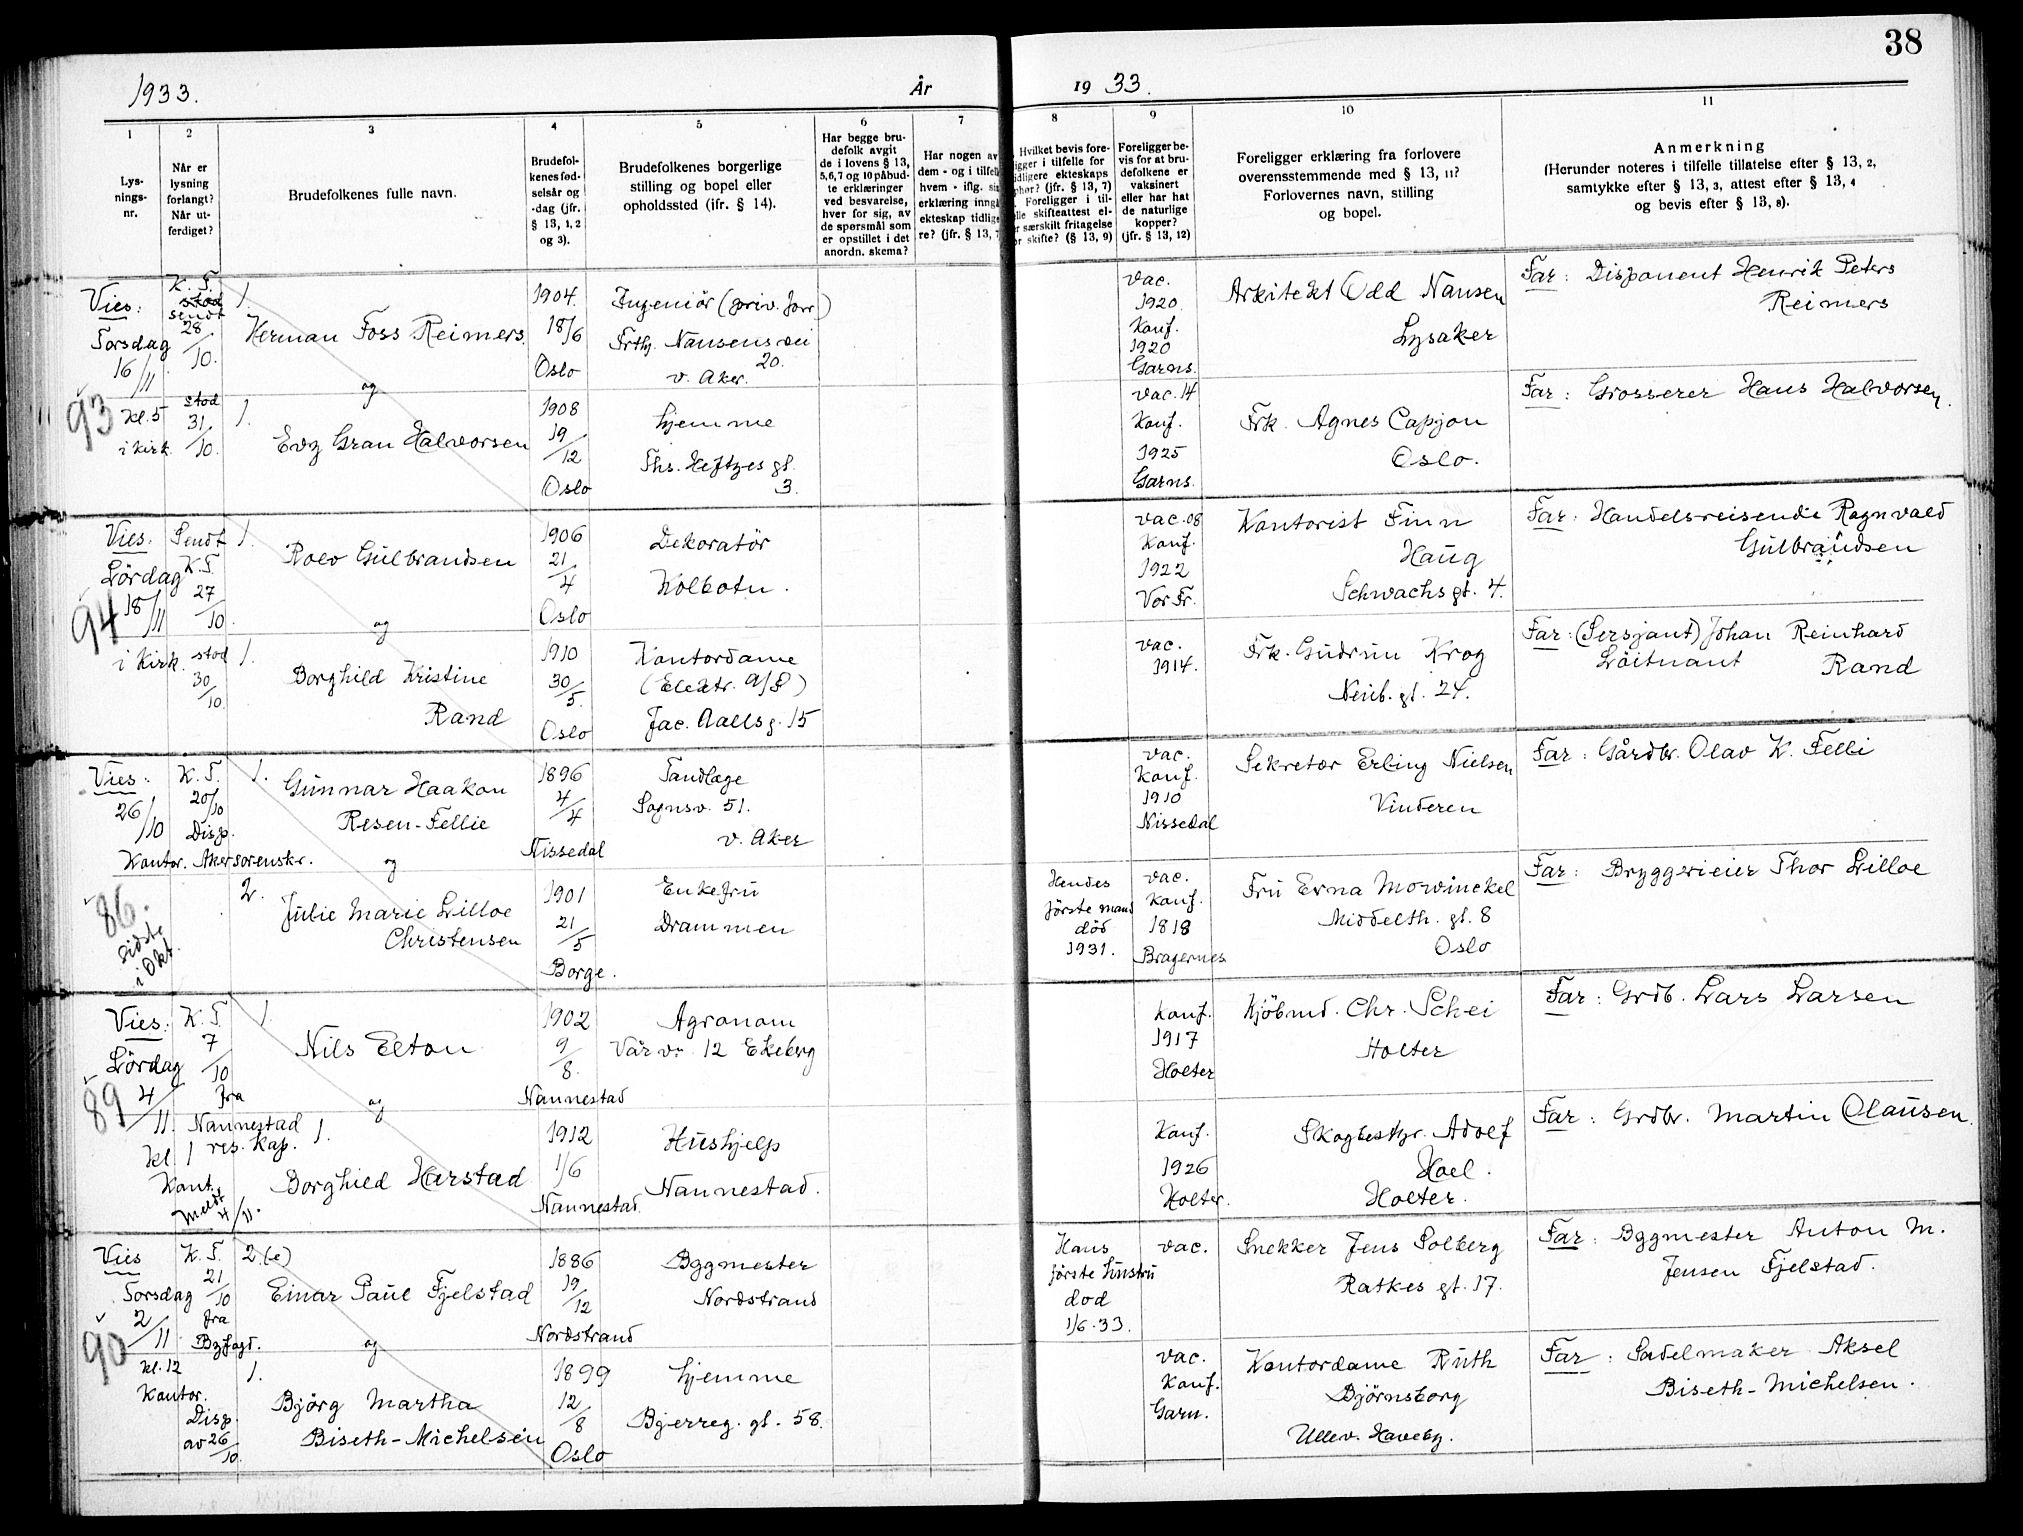 38
1933.
År
19 33.
1
2
3
4
5
6
7
8
9
10
11
Lys-
nings-
nr.
Når er
lysning
forlangt?
Når ut-
ferdiget?
Brudefolkenes fulle navn.
Brudefol-
kenes fød-
selsår og
-dag (jfr.
§ 13, 1, 2
og 3).
Brudefolkenes borgerlige
stilling og bopel eller
opholdssted (ifr. § 14).
Har begge bru-
defolk avgit
de i lovens § 13,
5,6,7 og 10 påbud-
te erklæringer
ved besvarelse,
hver for sig, av
de spørsmål som
er opstillet i det
anordn. skema?
Har nogen av
dem - og i tilfelle
hvem - iflg. sin
erklæring inngå
ekteskap tidlige
re? (jfr. § 13, 7
Hvilket bevis fore-
ligger i tilfelle for
tidligere ekteskaps
ophør? (jfr. § 13, 7)
Foreligger i til-
felle skifteattest el-
er særskilt fritagelse
for skifte? (§ 13, 9)
Foreligger be-
vis for at bru-
defolkene er
vaksinert
eller har hat
de naturlige
kopper?
(jfr. § 13, 12)
Foreligger erklæring fra forlovere
overensstemmende med § 13, 11?
Forlovernes navn, stilling
og bopel.
Anmerkning
(Herunder noteres i tilfelle tillatelse efter § 13, 2,
samtykke efter § 13, 3, attest efter § 13, 4
og bevis efter § 13, 8).
93
Vies:
Torsdag
16/11
kl. 5
i kirk.
K. T.
stod
sendt
28/10.
1.
Herman Foss Reimers.
og
1904.
18/6
Oslo
Ingeniör (priv. forr)
Frthj. Nansens vei
20.
v. Aker.
vac.
1920.
Konf.
1920
Garns.
Arkitekt Odd Nansen
Lysaker
Far: Disponent Henrik Peters
Reimers
stod
31/10.
1.
Evy Gran Halvorsen
1908
19/12
Oslo
hjemme
Ths. Heftyes gt.
3.
vac. 14
Konf.
1925
Garns.
Frk. Agnes Capjon
Oslo.
Far: Grosserer Hans Halvorsen.
94
Vies:
Lördag
18/11
i kirk.
Sendt
K. T.
27/10.
1.
Rolv Gulbrandsen
og
1906
21/4
Oslo
Dekoratør
Kolbotn.
vac. 08
Konf.
1922
Vor Fr.
Kontorist Finn
Haug
Schwachs gt. 4.
Far: Handelsreisende Ragnvald
Gulbrandsen
stod
30/10.
1.
Borghild Kristine
Rand
1910
30/5.
Oslo
Kontordame
(Elektr. A/S)
Jac. Aallsg. 15
vac.
1914.
Frk. Gudrun Krog
Neub. gt. 24.
Far: (Sersjant) Johan Reinhard
Löitnant Rand
Vies:
26/10
K. T.
20/10
Disp.
Kontor. Akersorenskr.
1.
Gunnar Haakon
Resen-Fellie
og
1896
4/4
Nissedal
Tandlæge
Sognsv. 51.
v. Aker
vac.
Konf.
1910
Nissedal
Sekretær Erling Nielsen
Vinderen
Far: Gårdbr. Olav K. Felli
86.
sidste
i Okt.
2.
Julie Marie Lilloe
Christensen
1901
21/5
Borge.
Enkefru
Drammen
Hendes
förste mand
död
1931.
vac.
Konf.
1818
Bragernes
Fru Erna Mowinckel
Middelth. gt. 8
Oslo
Far: Bryggerieier Thor Lilloe
89
Vies:
Lördag
4/11.
kl. 1
Kont.
meldt
4/11.
K. T.
7/10
fra
Nannestad
res. kap.
1.
Nils Elton
og
1902
9/8.
Nannestad
Agronom
Vår v. 12 Ekeberg
Konf.
1917
Holter
Kjöbmd. Chr. Schei
Holter
Far: Grdb. Lars Larsen
1.
Borghild Harstad
1912
1/6
Nannestad.
Hushjelp
Nannestad.
Konf.
1926
Holter.
Skogbestyr. Adolf
Hoel.
Holter.
Far: Grdbr. Martin Olausen.
90
Vies
Torsdag
2/11
kl. 12
Kontor.
K. T.
21/10
fra
Byfogd.
2 (e)
Einar Paul Fjelstad
og
1886
19/12
Nordstrand
Byggmester
Nordstrand
Hans
förste hustru
död
1/6. 33.
vac.
Snekker Jens Solberg
Ratkes gt. 17.
Far: Byggmester Anton M.
Jensen Fjelstad.
Disp.
av 26/10.
1.
Björg Martha
Biseth-Michelsen
1899
12/8
Oslo
hjemme
Bjerreg. gt. 58.
vac.
Konf.
Garn.
Kontordame Ruth
Björnsborg
Ullev. Haveby.
Far: Sadelmaker Aksel
Biseth-Michelsen.